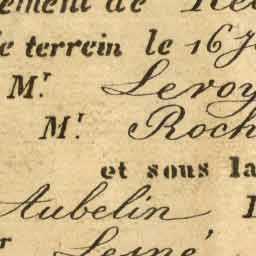 ement de
e terrein le 16
Mr. Leroy
Mr. Roch
et sous la
Aubelin
r Lesné